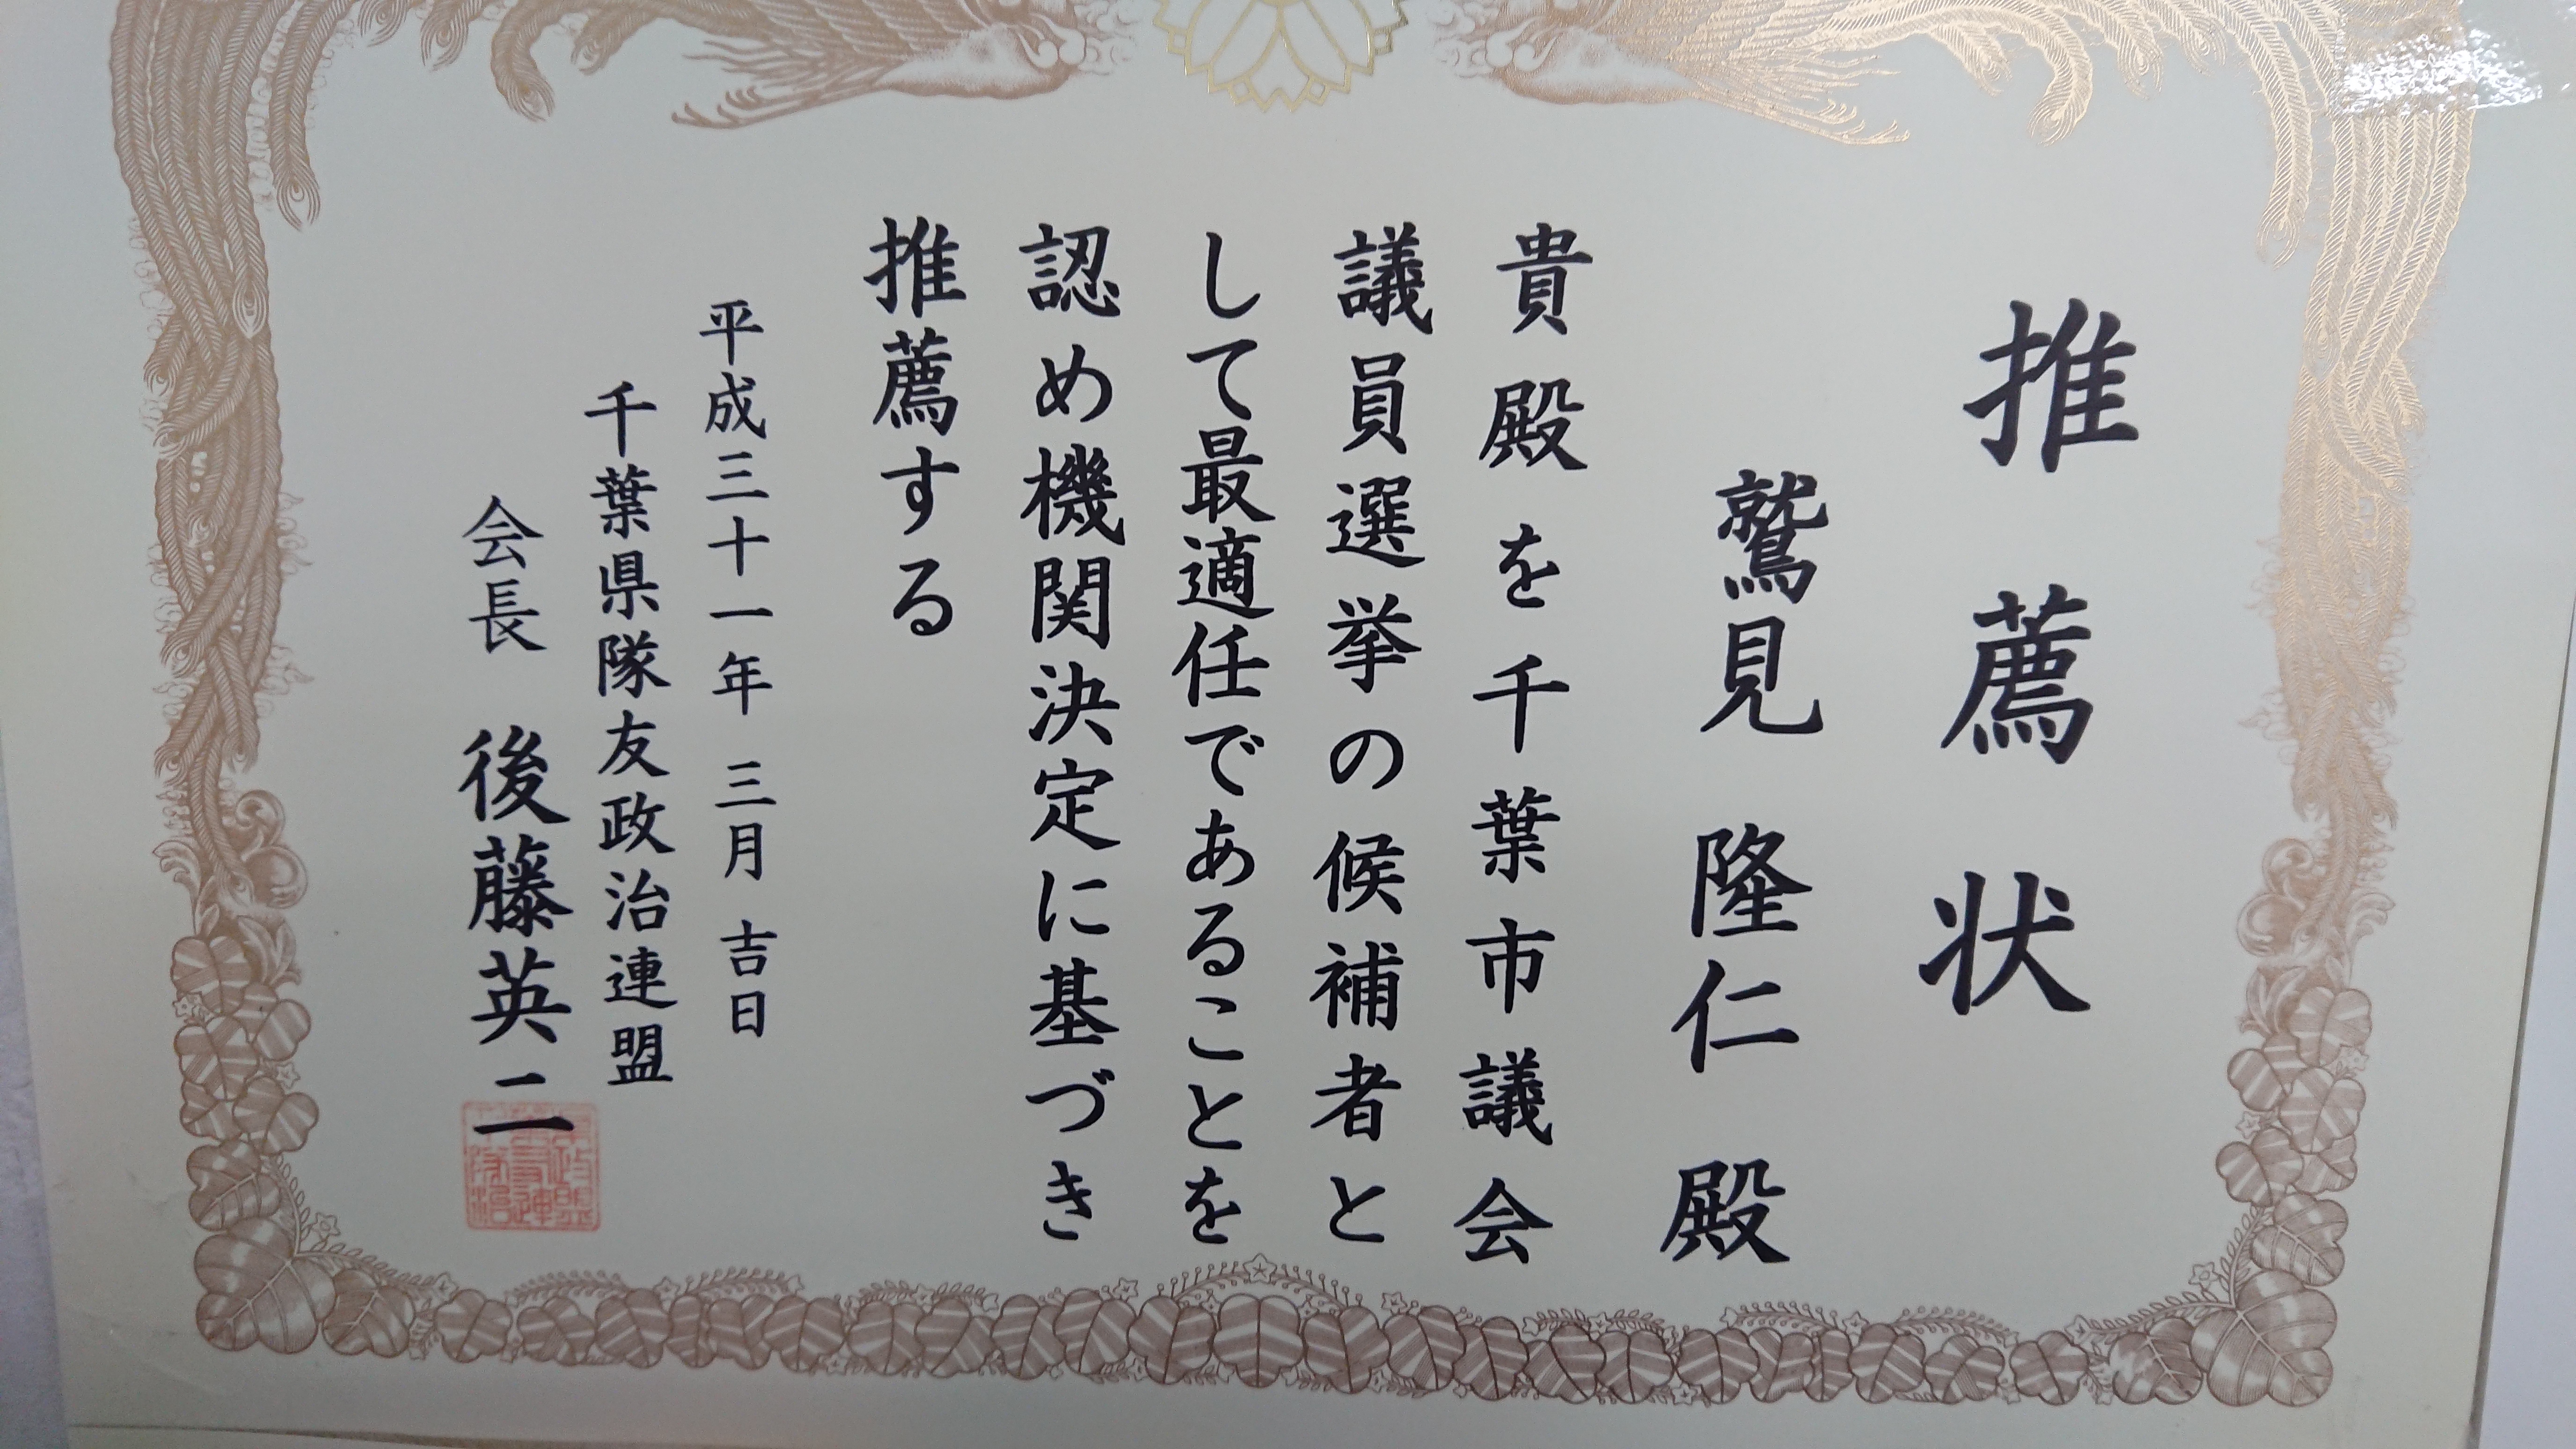 推薦状
鷲見隆仁殿
貴殿を千葉市議会
議員選挙の候補者と
して最適任であることを
認め機関決定に基づき
推薦する
平成三十一年三月吉日
千葉県隊友政治連盟
会長 後藤英二